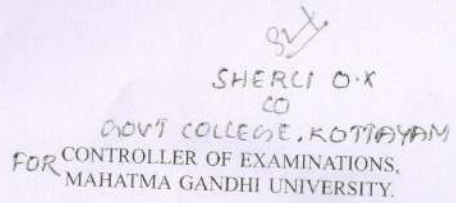 SHERLI O.X
CO
GOVT COLLEGE, KOTTAYAM
FOR CONTROLLER OF EXAMINATIONS,
MAHATMA GANDHI UNIVERSITY.